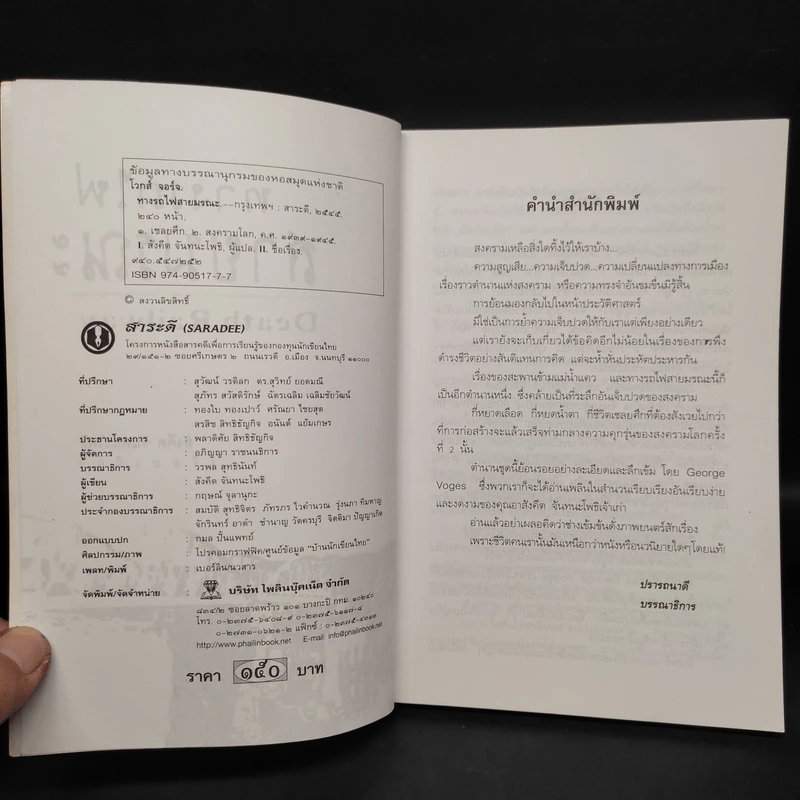 ข้อมูลทางบรรณานุกรมของหอสมุดแห่งชาติ
โวกส์ จอร์จ.
ทางรถไฟสายมรณะ.--กรุงเทพฯ : สาระดี, ๒๕๔๕.
๒๔๐ หน้า.
๑. เชลยศึก. ๒. สงครามโลก, ค.ศ. ๑๙๓๙-๑๙๔๕.
I. สังคีต จันทนะโพธิ, ผู้แปล. II. ชื่อเรื่อง.
๙๔๐.๕๔๗๒๕๒
ISBN 974-90517-7-7
© สงวนลิขสิทธิ์
สาระดี (SARADEE)
โครงการหนังสือสารคดีเพื่อการเรียนรู้ของกองทุนนักเขียนไทย
๒๙/๑๕๑-๒ ซอยศรีเกษตร ๒ ถนนเรวดี อ.เมือง จ.นนทบุรี ๑๑๐๐๐
ที่ปรึกษา : สุวัฒน์ วรดิลก ดร.สุวิทย์ ยอดมณี
สุภัทร สวัสดิรักษ์ ฉัตรเฉลิม เฉลิมชัยวัฒน์
ที่ปรึกษากฎหมาย : ทองใบ ทองเปาว์ ศรัณยา ไชยสุต
สรสิช สิทธิธัญกิจ อนันต์ แย้มเกษร
ประธานโครงการ : พลาดิศัย สิทธิธัญกิจ
ผู้จัดการ : อภิญญา ราชนนธิการ
บรรณาธิการ : วรพล สุทธินันท์
ผู้เขียน : สังคีต จันทนะโพธิ
ผู้ช่วยบรรณาธิการ : กฤษณ์ จุลานุกะ
ประจำกองบรรณาธิการ : สมบัติ สุทธิจิตร ภัทรภร ไวคำนวณ รุ่งนภา ทิมหาญ
จักรินทร์ อาดำ ชำนาญ วัดครบุรี จิตติมา ปัญญาเกิด
ออกแบบปก : กมล ปั้นแพทย์
ศิลปกรรม/ภาพ : โปรคอมกราฟฟิค/ศูนย์ข้อมูล "บ้านนักเขียนไทย"
เพลท/พิมพ์ : เบอร์ลิน/นวสาร
จัดพิมพ์/จัดจำหน่าย : บริษัท ไพลินบุ๊คเน็ต จำกัด
๘๓๔/๒ ซอยลาดพร้าว ๑๐๑ บางกะปิ กทม. ๑๐๒๔๐
โทร. ๐-๒๓๗๕-๖๔๐๘-๙ ๐-๒๓๗๕-๖๑๑๗-๘
๐-๒๗๓๑-๐๖๒๑-๒ แฟ็กซ์ : ๐-๒๓๗๕-๔๓๑๓
http://www.phailinbook.net E-mail: info@phailinbook.net
ราคา ๑๕๐ บาท
คำนำสำนักพิมพ์
สงครามเหลือสิ่งใดทิ้งไว้ให้เราบ้าง...
ความสูญเสีย...ความเจ็บปวด...ความเปลี่ยนแปลงทางการเมือง
เรื่องราวตำนานแห่งสงคราม หรือความทรงจำอันขมขื่นมิรู้สิ้น
การย้อนมองกลับไปในหน้าประวัติศาสตร์
มิใช่เป็นการย้ำความเจ็บปวดให้กับเราแต่เพียงอย่างเดียว
แต่เรายังจะเก็บเกี่ยวได้ข้อคิดอีกไม่น้อยในเรื่องของการพึง
ดำรงชีวิตอย่างสันติแทนการคิด แต่จะห้ำหั่นประหัตประหารกัน
เรื่องของสะพานข้ามแม่น้ำแคว และทางรถไฟสายมรณะนี้ก็
เป็นอีกตำนานหนึ่ง ซึ่งคล้ายเป็นที่ระลึกอันเจ็บปวดของสงคราม
กี่หยาดเลือด กี่หยดน้ำตา กี่ชีวิตเชลยศึกที่ต้องสังเวยไปกว่า
ที่การก่อสร้างจะแล้วเสร็จท่ามกลางความคุกรุ่นของสงครามโลกครั้ง
ที่ 2 นั้น
ตำนานชุดนี้ย้อนรอยอย่างละเอียดและลึกเข้ม โดย George
Voges ซึ่งพวกเราก็จะได้อ่านเพลินในสำนวนเรียบเรียงอันเรียบง่าย
และงดงามของคุณอาสังคีต จันทนะโพธิเจ้าเก่า
อ่านแล้วอย่าเผลอคิดว่าช่างเข้มข้นดั่งภาพยนตร์สักเรื่อง
เพราะชีวิตคนเรานั้นมันเหนือกว่าหนังหรือนวนิยายใดๆโดยแท้!
ปรารถนาดี
บรรณาธิการ